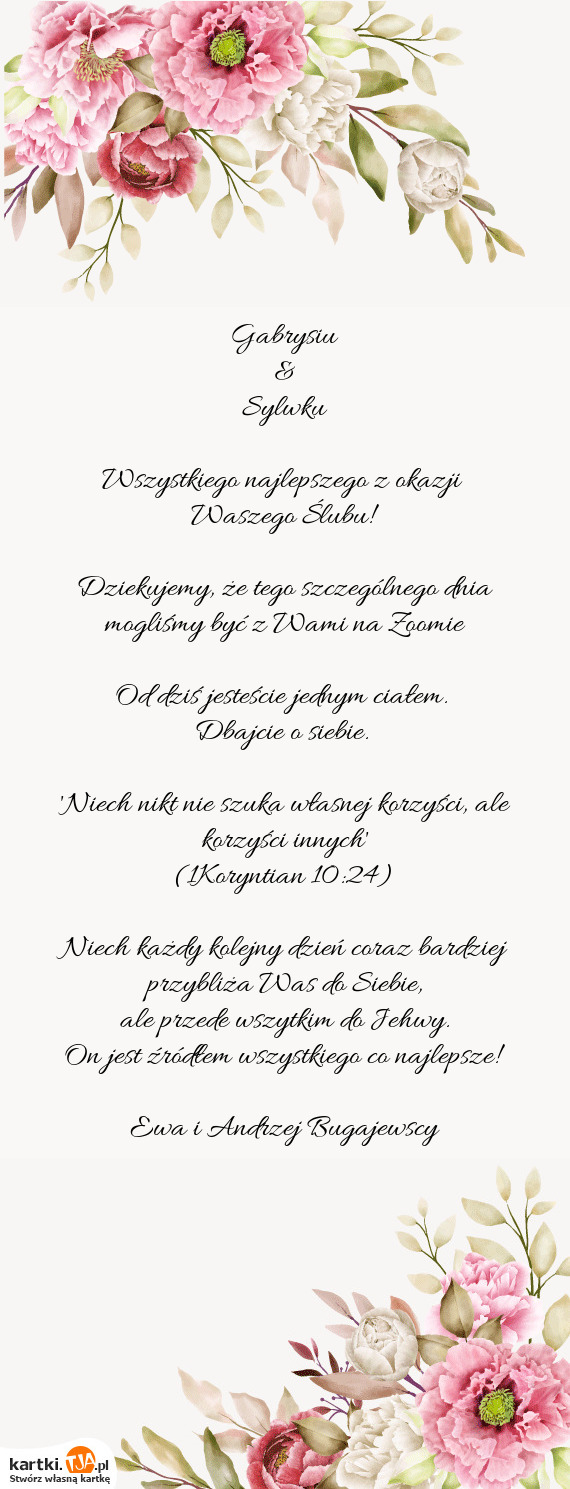 Gabrysiu
&
Sylwku
Wszystkiego najlepszego z okazji
Waszego Ślubu!
Dziekujemy, że tego szczególnego dnia
mogliśmy być z Wami na Zoomie
Od dziś jesteście jednym ciałem.
Dbajcie o siebie.
'Niech nikt nie szuka własnej korzyści, ale
korzyści innych'
(1Koryntian 10:24)
Niech każdy kolejny dzień coraz bardziej
przybliża Was do Siebie,
ale przede wszytkim do Jehwy.
On jest źródłem wszystkiego co najlepsze!
Ewa i Andrzej Bugajewscy
kartki.TJA.pl
Stwórz własną kartkę